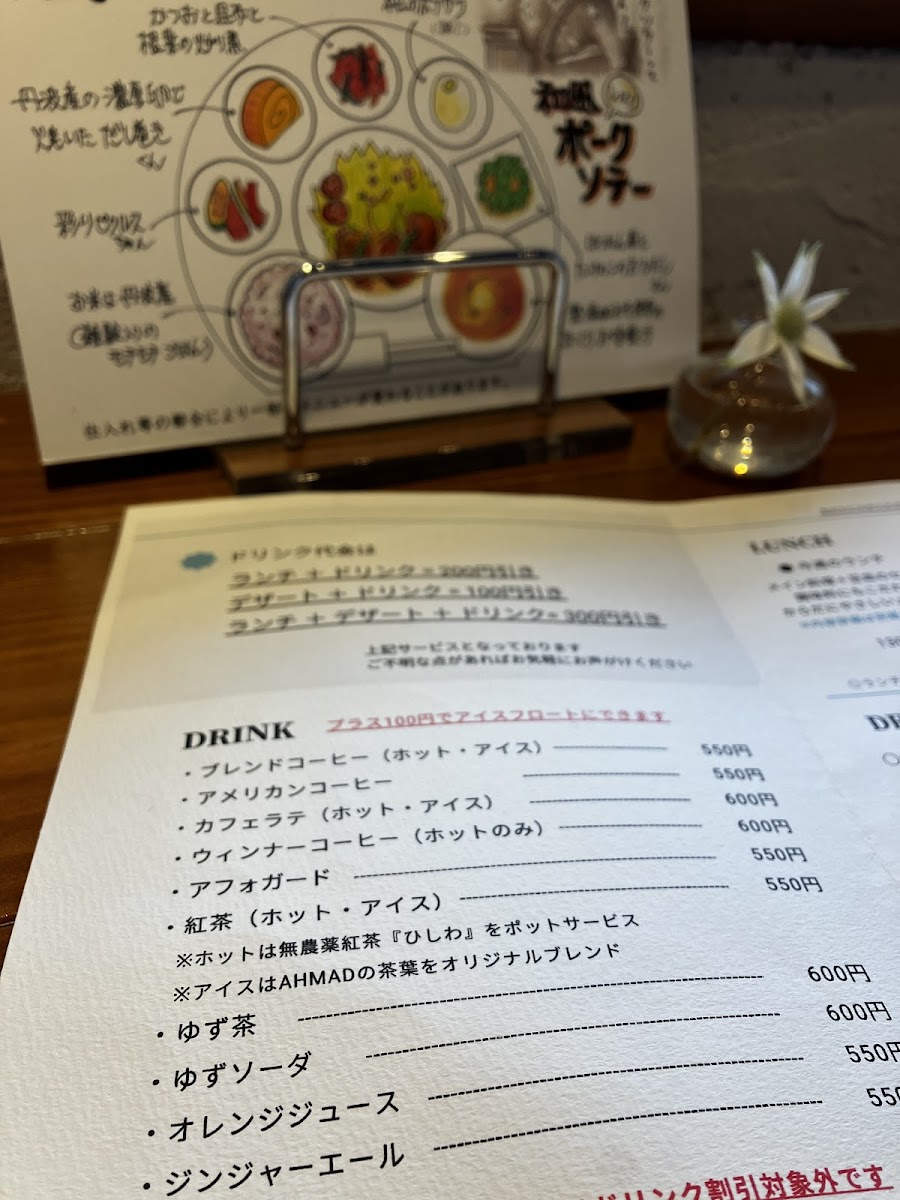 かつおと昆布と
根菜の炒り煮
丹波産の濃厚卵で
焼いただし巻き
くん
和風
ポーク
ソテー
彩りピクルス
ちゃん
お米は丹波産
(雑穀入りの
モチモチごはん)
仕入れ等の都合により一部メニューが変わることがあります。
ドリンク代金は
ランチ + ドリンク = 200円引き
デザート + ドリンク = 100円引き
ランチ + デザート + ドリンク = 300円引き
上記サービスとなっております
ご不明な点があればお気軽にお声がけください
LUNCH
DRINK プラス100円でアイスフロートにできます
・ブレンドコーヒー（ホット・アイス） 550円
・アメリカンコーヒー 550円
・カフェラテ（ホット・アイス） 600円
・ウィンナーコーヒー（ホットのみ） 600円
・アフォガード 550円
・紅茶（ホット・アイス） 550円
※ホットは無農薬紅茶『ひしわ』をポットサービス
※アイスはAHMADの茶葉をオリジナルブレンド
・ゆず茶 600円
・ゆずソーダ 600円
・オレンジジュース 550円
・ジンジャーエール 550
ドリンク割引対象外です